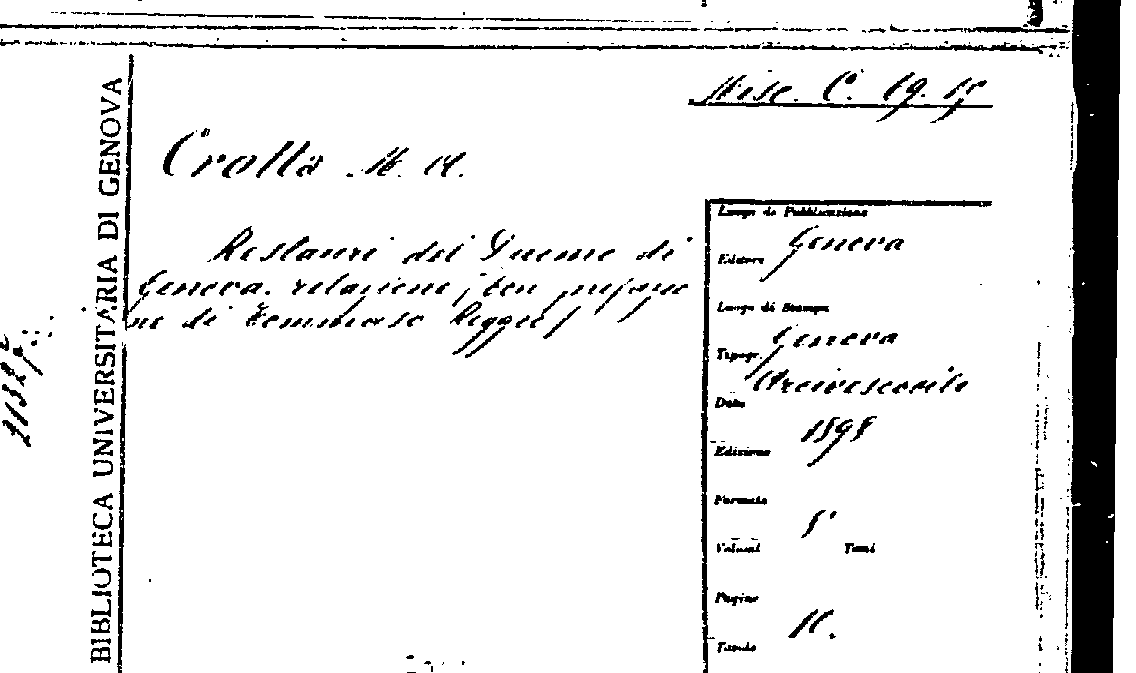 Misc. C. 19. 15
Crotta M. A.
Restauri del Duomo di
Genova. relazione, (con prefazio
ne di Tommaso Reggio)
BIBLIOTECA UNIVERSITARIA DI GENOVA
Luogo di Pubblicazione
Genova
Editore
Luogo di Stampa
Genova
Tipogr.
Arcivescovile
Data
1898
Edizione
Formato
8°
Volumi Tomi
Pagine
16.